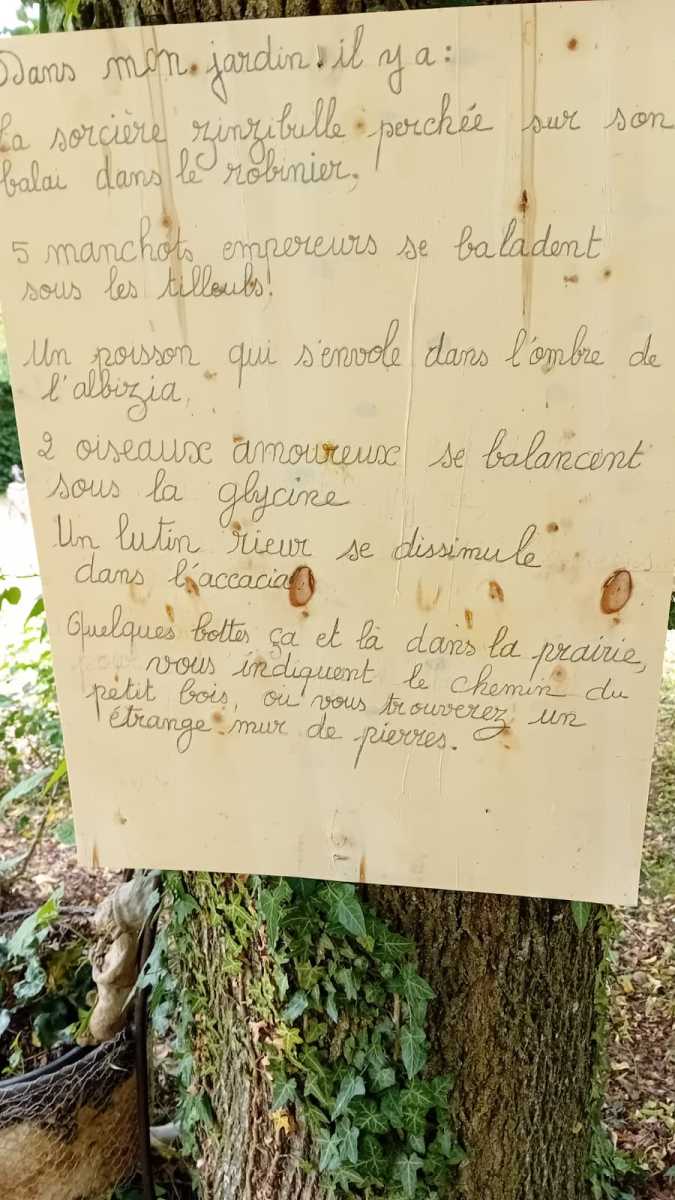 Dans mon jardin il y a :
La sorcière zinzibulle perchée sur son
balai dans le robinier,
5 manchots empereurs se baladent
sous les tilleuls!
Un poisson qui s'envole dans l'ombre de
l'albizia,
2 oiseaux amoureux se balancent
sous la glycine
Un lutin rieur se dissimule
dans l'accacia
Quelques bottes ça et là dans la prairie,
vous indiquent le chemin du
petit bois, où vous trouverez un
étrange mur de pierres.